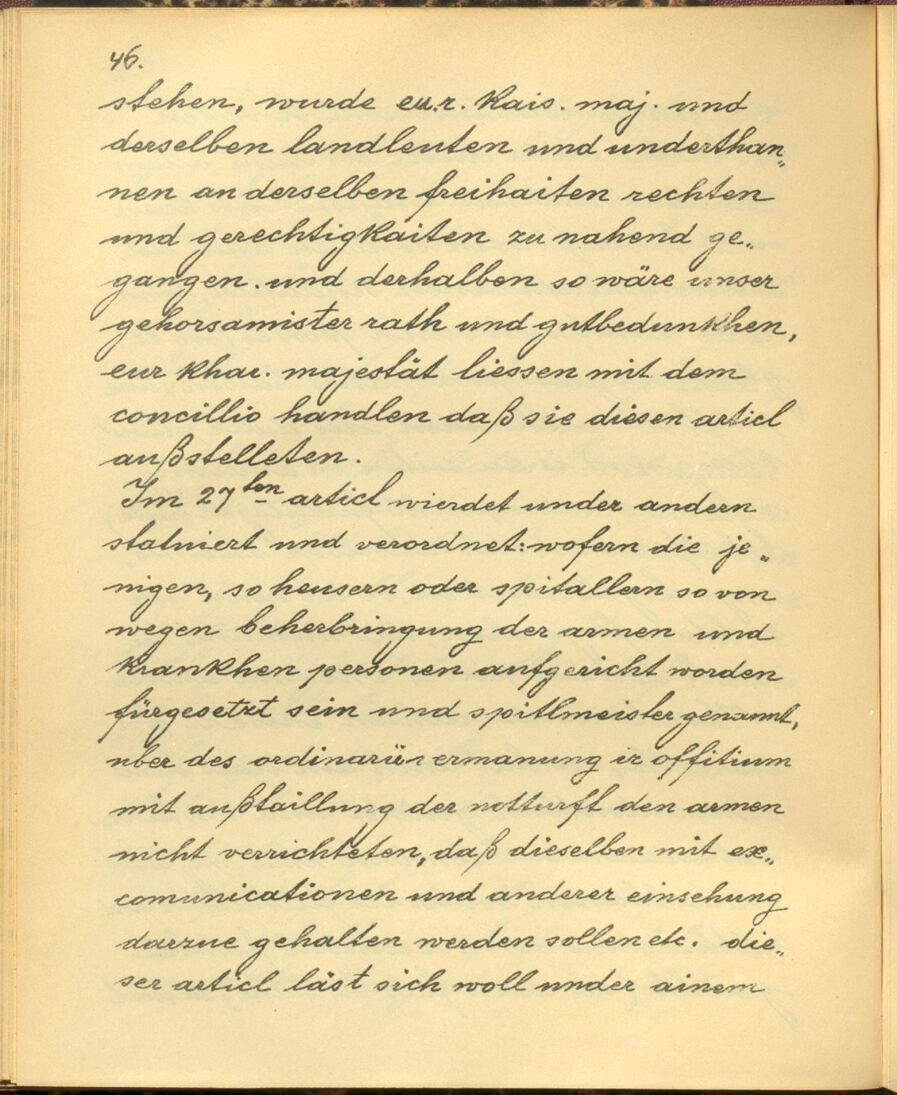 46.
stehen, wurde eu.r. Kais. maj. und
derselben landleuten und underthan„
nen an derselben freihaiten rechten
und gerechtigkaiten zu nahend ge„
gangen. und derhalben so wäre unser
gehorsamister rath und gutbedunkhen,
eur khai. majestät liessen mit dem
concillio handlen daß sie diesen articl
außstelleten.
Im 27ten articl wierdet under andern
statuiert und verordnet: wofern die je„
nigen, so heusern oder spitallern so von
wegen beherbringung der armen und
krankhen personen aufgericht worden
fürgesetzt sein und spitlmeister genannt,
über des ordinarii ermanung ir offitium
mit außtaillung der notturft den armen
nicht verrichteten, daß dieselben mit ex„
comunicationen und anderer einsehung
darzue gehalten werden sollen etc. die„
ser articl läst sich woll under ainem